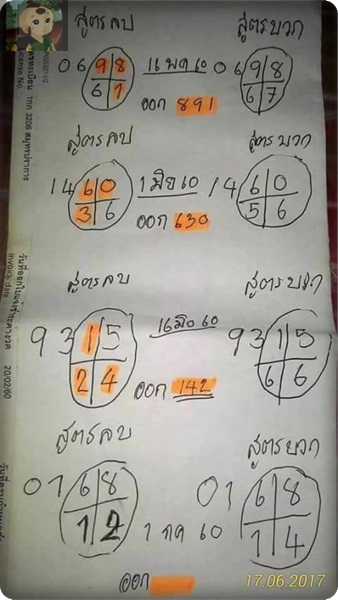 สูตรลบ สูตรบวก
0 6 9 8 16 พค 60 0 6 9 8
6 1 6 7
ออก 891
สูตรลบ สูตรบวก
1 4 6 0 1 มิย 60 1 4 6 0
3 6 5 6
ออก 630
สูตรลบ สูตรบวก
9 3 1 5 16 มิย 60 9 3 1 5
2 4 6 6
ออก 142
สูตรลบ สูตรบวก
0 1 6 8 0 1 6 8
1 2 1 กค 60 1 4
ออก
17.06.2017
Invoice date 20/02/60